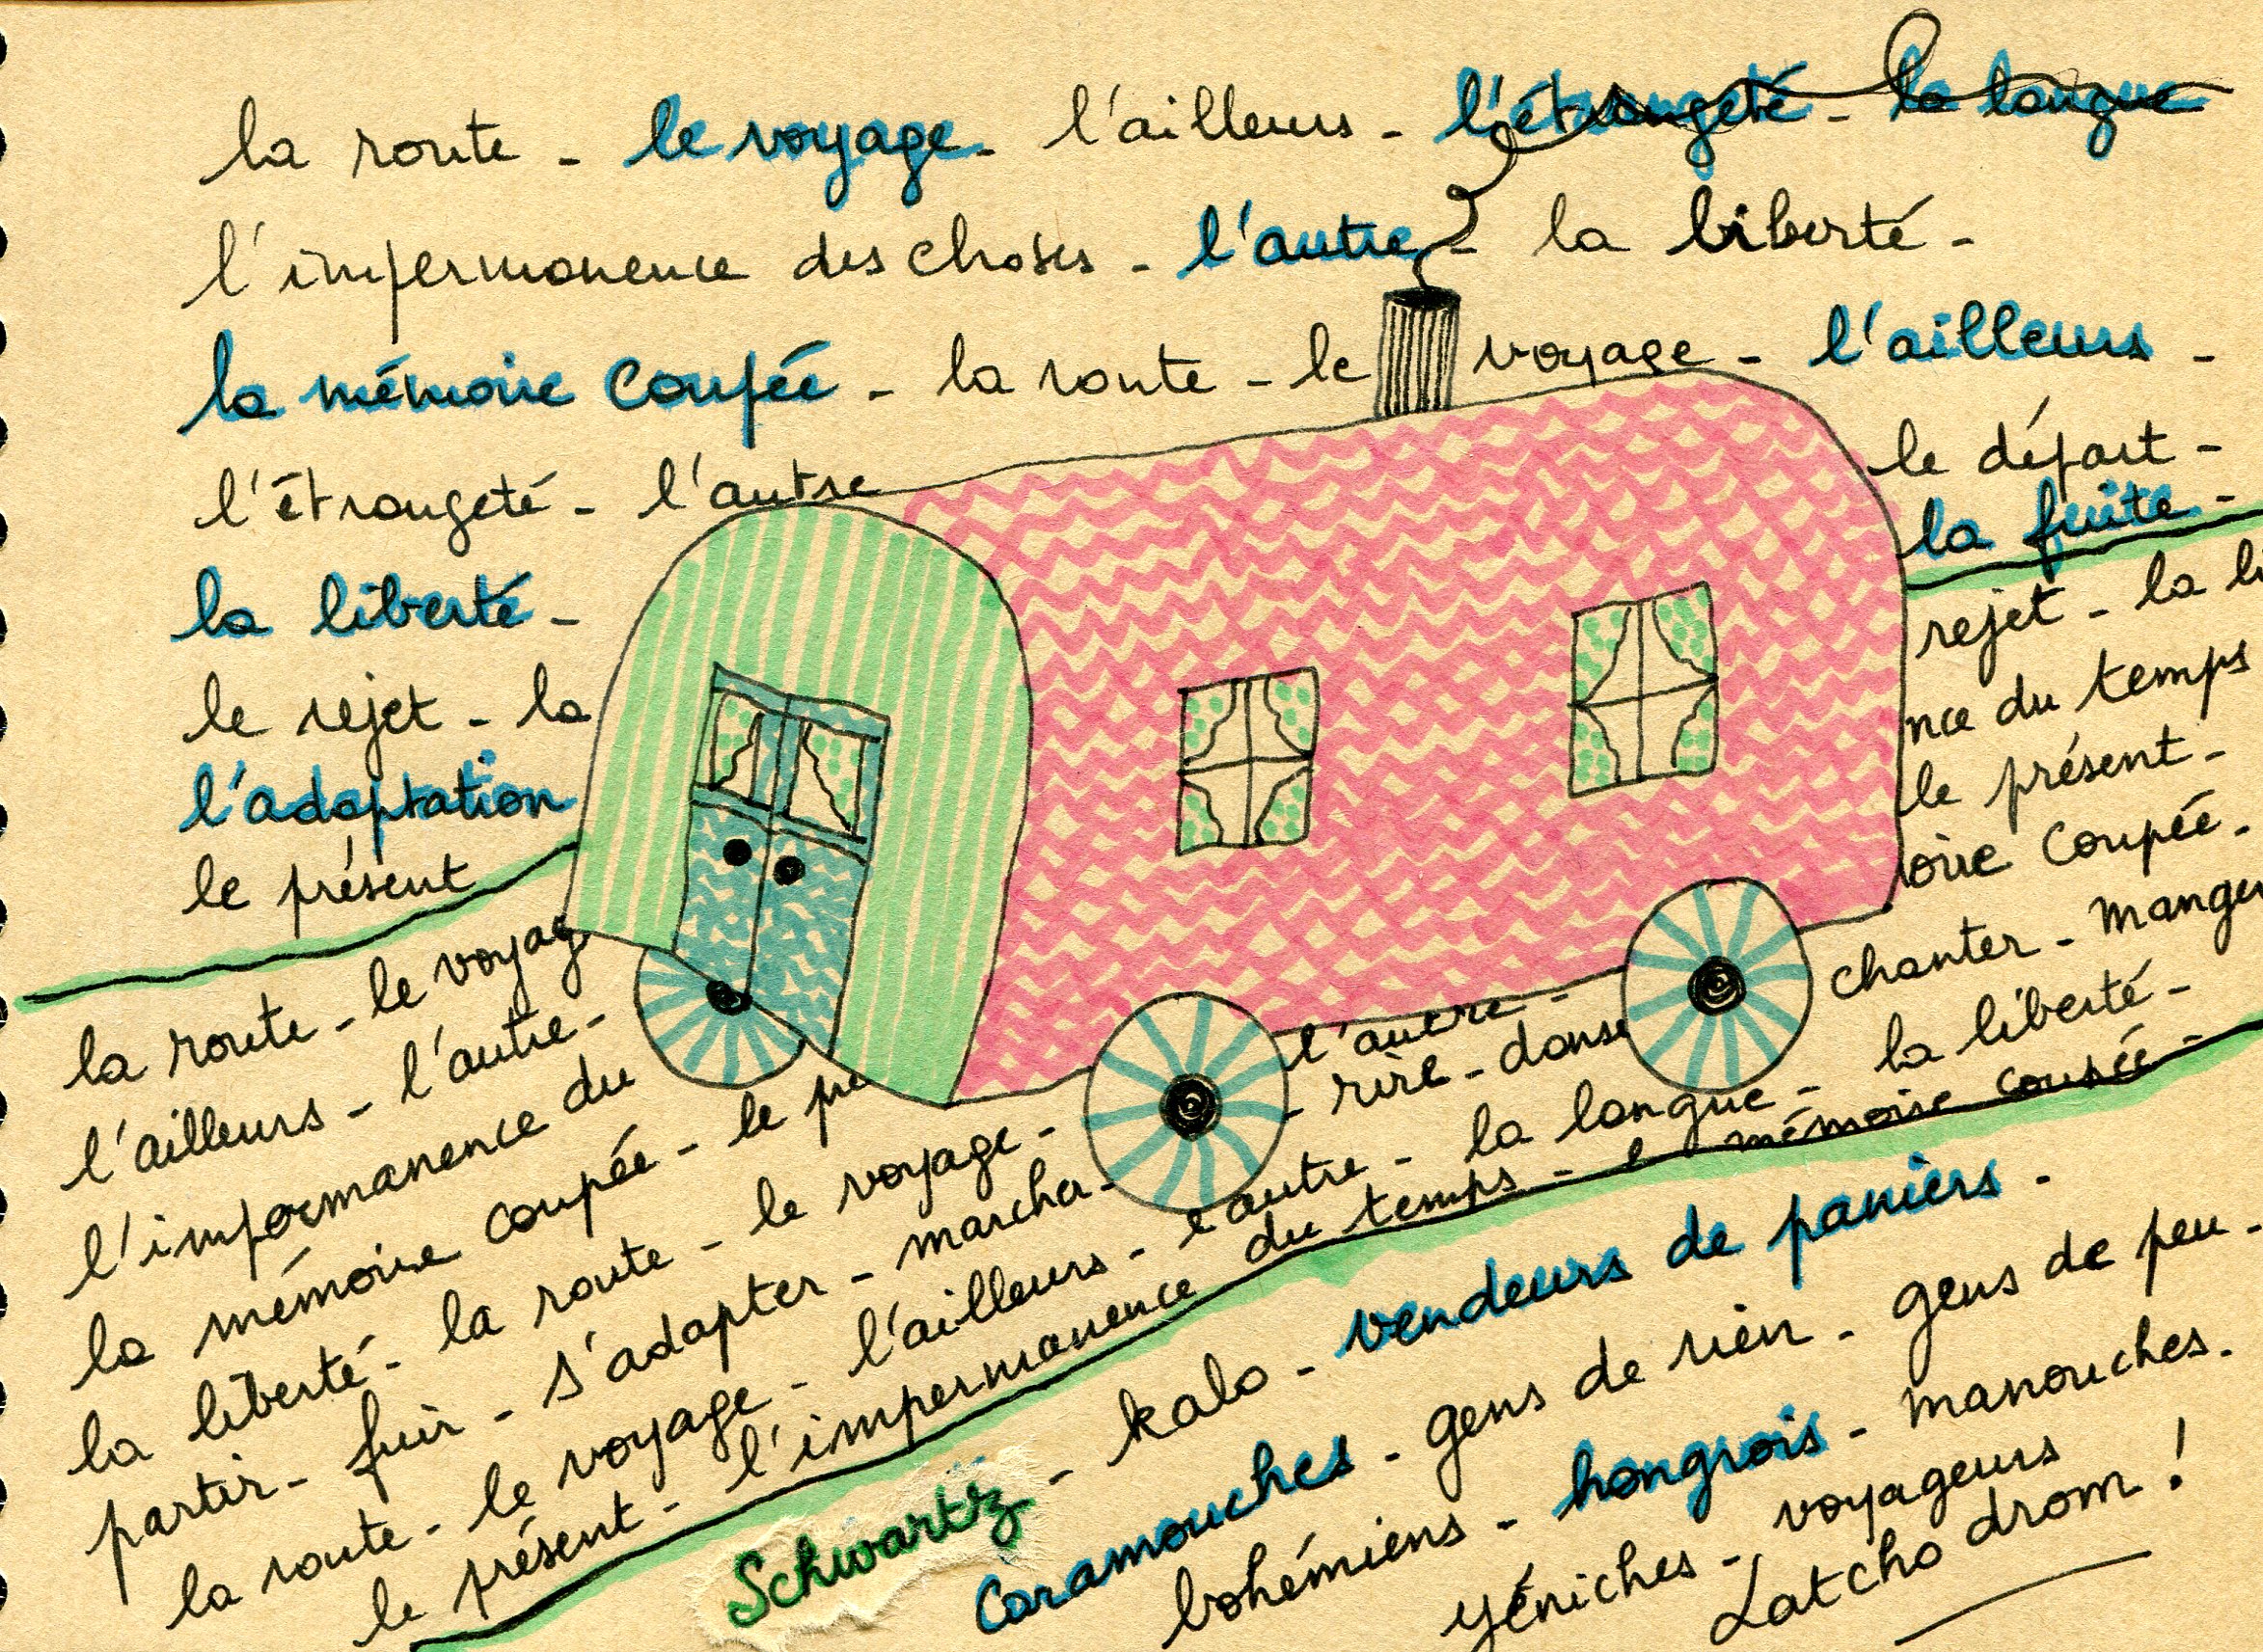 la route - le voyage - l'ailleurs - l'étrangeté - la langue
l'impermanence des choses - l'autre - la liberté -
la mémoire coupée - la route - le voyage - l'ailleurs -
l'étrangeté - l'autre le départ -
la liberté - la fuite -
le rejet - la rejet - la li
l'adaptation nce du temps
le présent le présent -
oire coupée -
la route - le voyag chanter - manger
l'ailleurs - l'autre - l'autre -
l'impermanence du - rire - danse
la mémoire coupée - le pré
la liberté - la route - le voyage - l'autre - la langue - la liberté -
partir - fuir - s'adapter - marcher -
la route - le voyage - l'ailleurs - du temps - mémoire coupée -
le présent - l'impermanence
Schwartz - kalo - vendeurs de paniers -
Caramouches - gens de rien - gens de peu -
bohémiens - hongrois - manouches -
yéniches - voyageurs
Latcho drom !